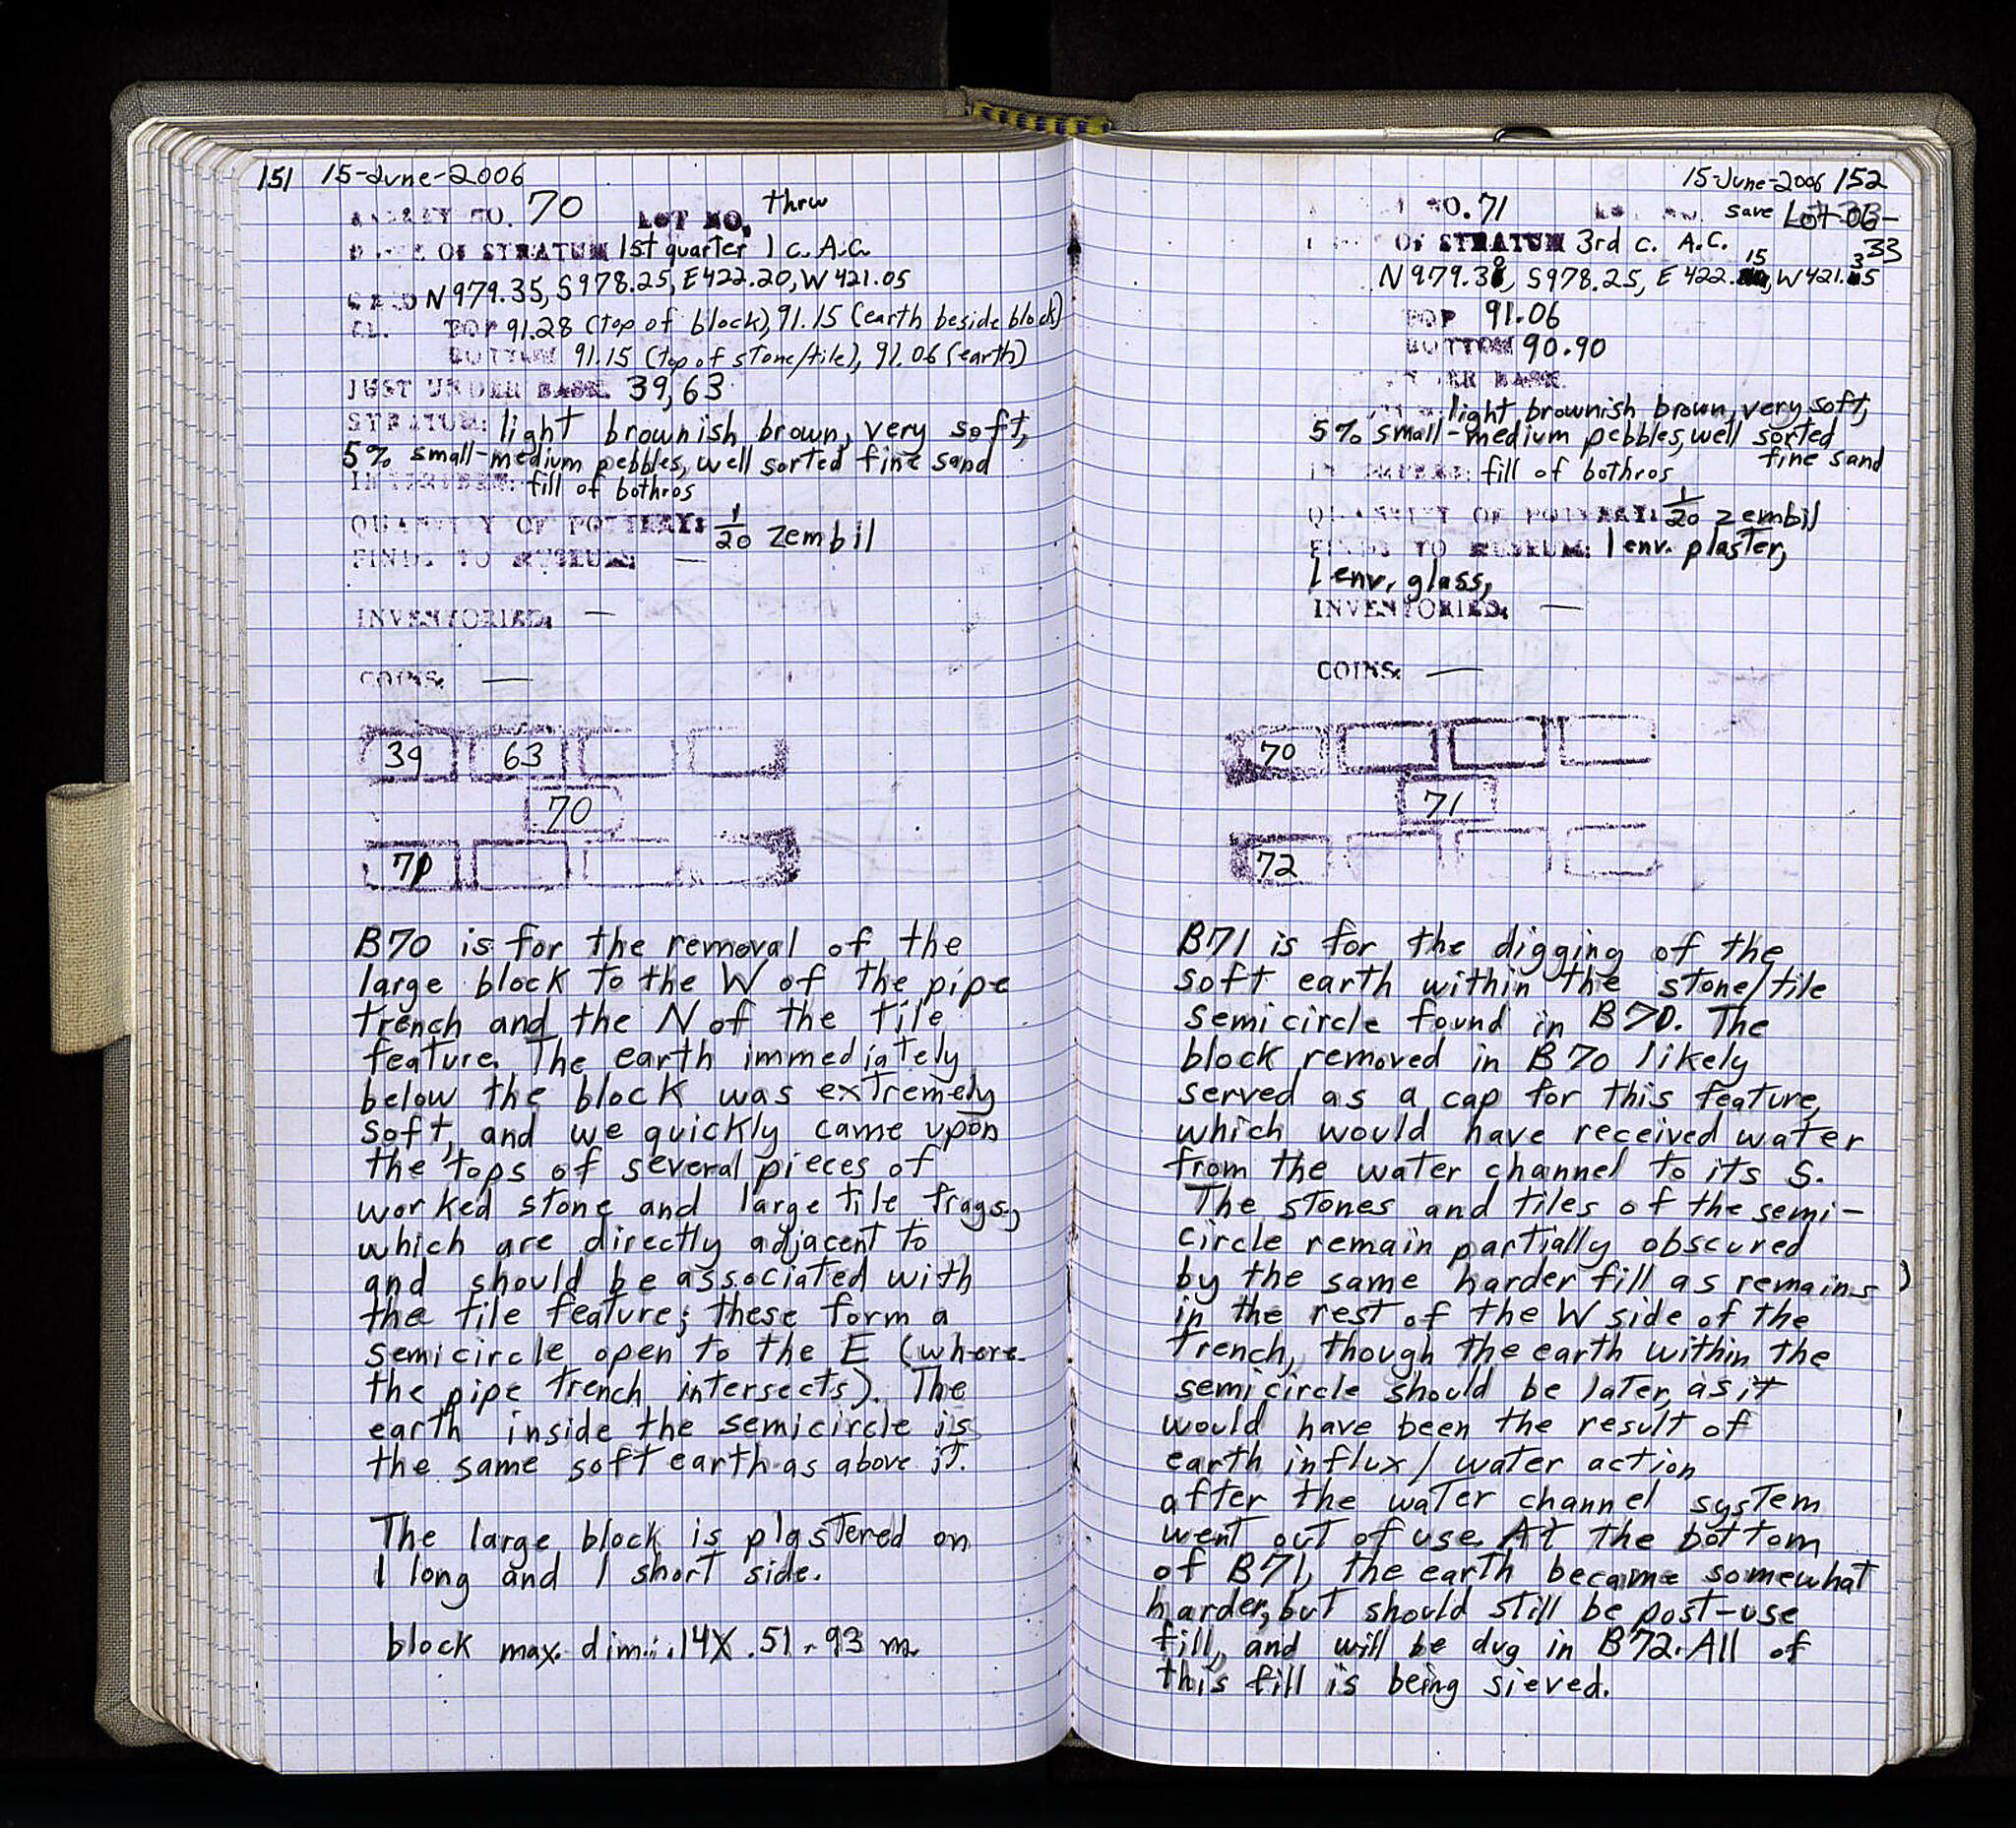 151 15-June-2006
BASKET NO. 70 LOT NO. throw
DATE OF STRATUM 1st quarter 1 c. A.C.
GRID N979.35, S978.25, E422.20, W421.05
EL. TOP 91.28 (top of block), 91.15 (earth beside block)
BOTTOM 91.15 (top of stone/tile), 91.06 (earth)
JUST UNDER BASK. 39, 63
STRATUM: light brownish brown, very soft,
5% small-medium pebbles, well sorted fine sand
INTERPRET: fill of bothros
QUANTITY OF POTTERY: 1/20 zembil
FINDS TO MUSEUM: —
INVENTORIED: —
COINS: —
39 63
70
71
B70 is for the removal of the
large block to the W of the pipe
trench and the N of the tile
feature. The earth immediately
below the block was extremely
soft, and we quickly came upon
the tops of several pieces of
worked stone and large tile frags.,
which are directly adjacent to
and should be associated with
the tile feature; these form a
semicircle open to the E (where
the pipe trench intersects). The
earth inside the semicircle is
the same soft earth as above it.
The large block is plastered on
1 long and 1 short side.
block max. dim.: .14 X .51 × .93 m.
15-June-2006 152
NO. 71 save Lot 06-
33
OF STRATUM 3rd c. A.C.
N979.30, S978.25, E422.15, W421.35
TOP 91.06
BOTTOM 90.90
UNDER BASK.
light brownish brown, very soft,
5% small-medium pebbles, well sorted
fine sand
fill of bothros
QUANTITY OF POTTERY: 1/20 zembil
FINDS TO MUSEUM: 1 env. plaster,
1 env. glass,
INVENTORIED: —
COINS: —
70
71
72
B71 is for the digging of the
soft earth within the stone/tile
semicircle found in B70. The
block removed in B70 likely
served as a cap for this feature,
which would have received water
from the water channel to its S.
The stones and tiles of the semi-
circle remain partially obscured
by the same harder fill as remains
in the rest of the W side of the
trench, though the earth within the
semicircle should be later, as it
would have been the result of
earth influx / water action
after the water channel system
went out of use. At the bottom
of B71, the earth became somewhat
harder, but should still be post-use
fill, and will be dug in B72. All of
this fill is being sieved.